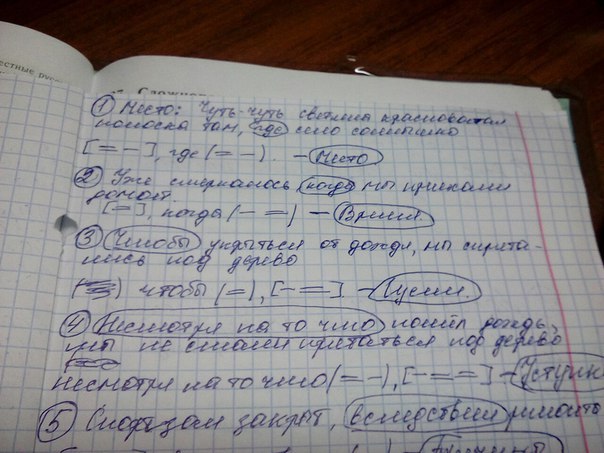 естные рус
Сложно
① Место: Чуть-чуть светлая красноватая
полоска там, где село солнышко
[= -], где (= -). - Место
② Уже смеркалось когда мы приехали
домой.
[=], когда (- =) - Время
③ Чтобы укрыться от дождя, мы спрята-
лись под дерево
чтобы (=), [- =]. -
④ Несмотря на то что пошёл дождь,
мы не стали прятаться под дерево
несмотря на то что (= -), [- = =] - Уступк
⑤ закрыт, вследствии ремонта